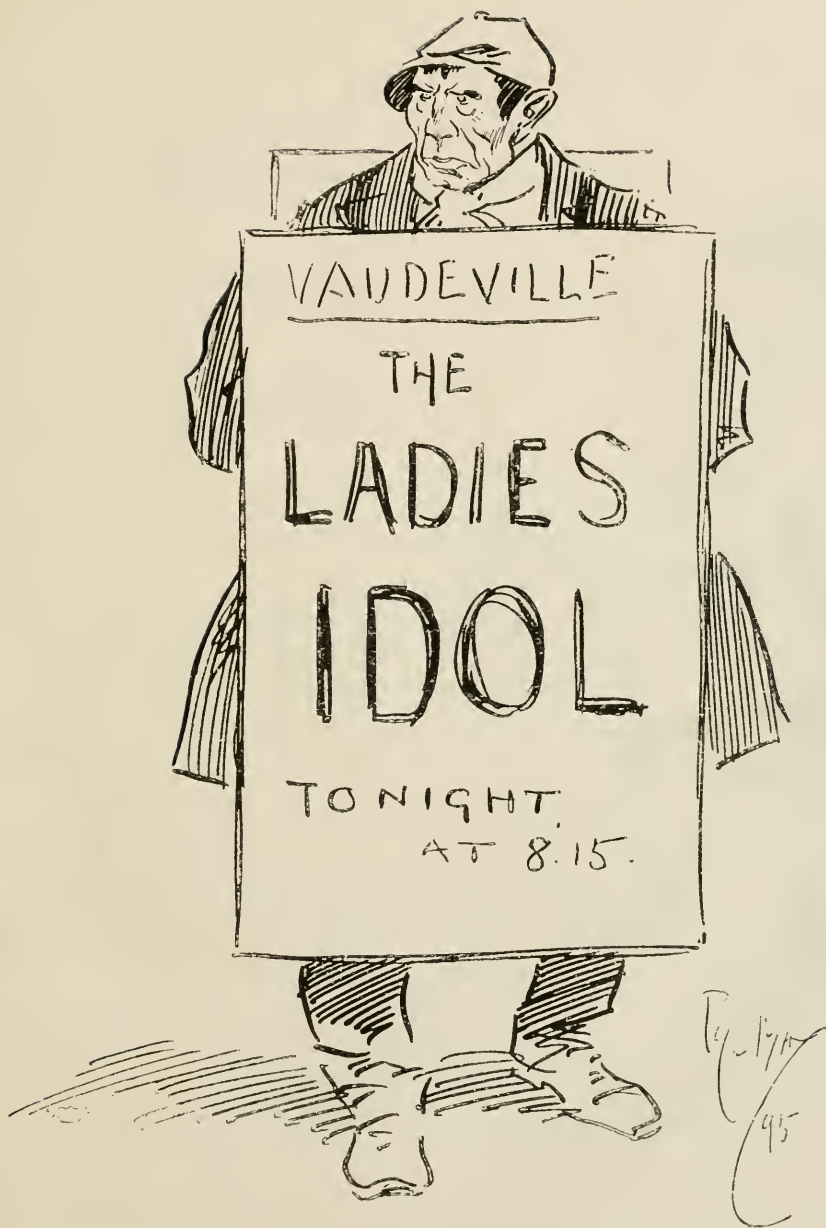 VAUDEVILLE
THE
LADIES
IDOL
TONIGHT
AT 8.15.
95